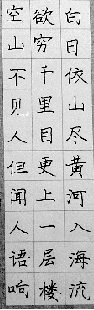 白日依山尽黄河入海流
欲穷千里目更上一层楼
空山不见人但闻人语响